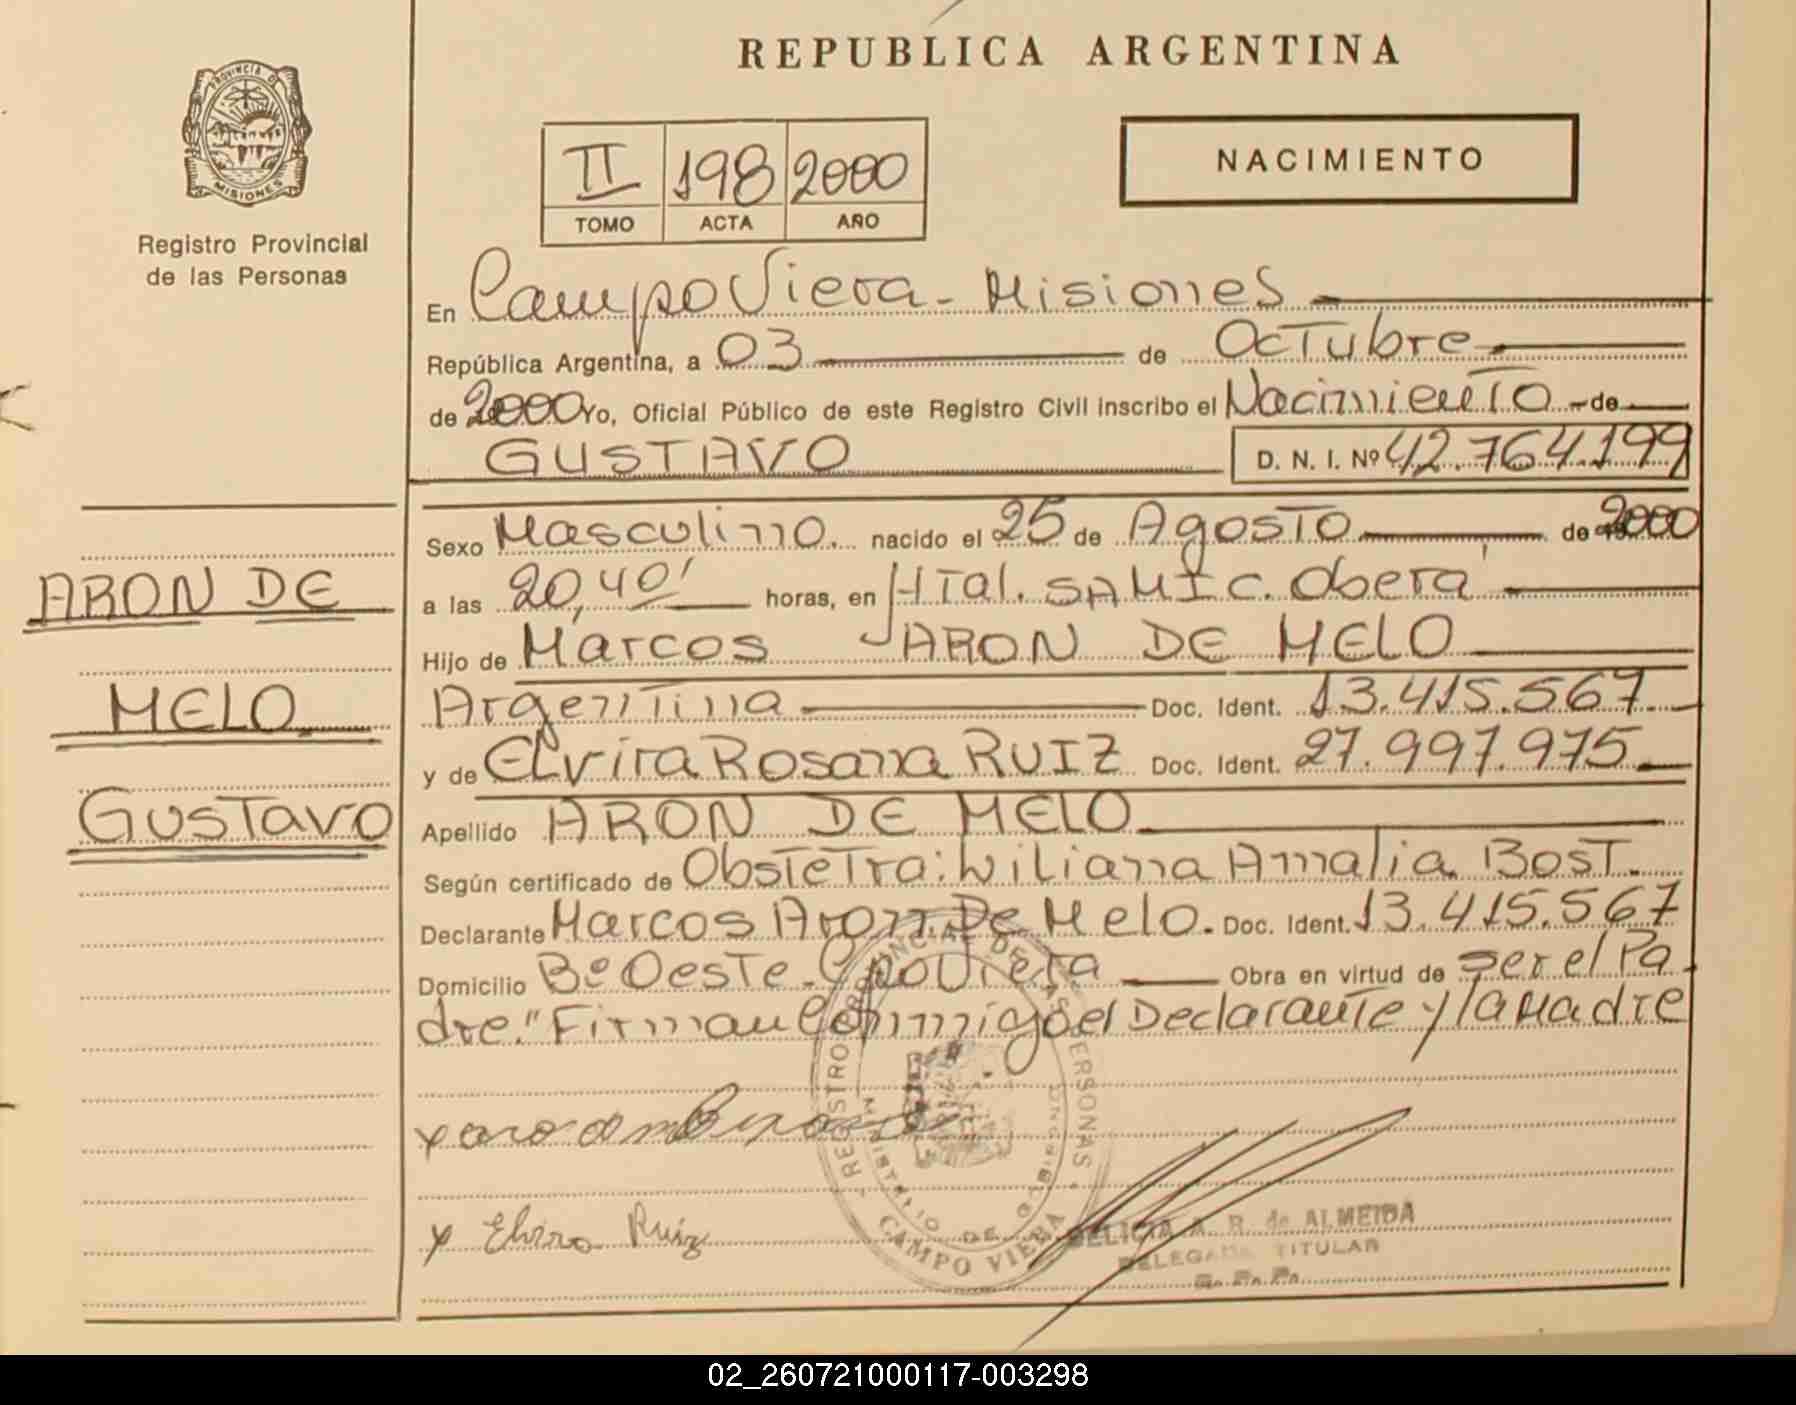 REPUBLICA ARGENTINA
PROVINCIA D
MISIONES
Registro Provincial
de las Personas
II 198 2000
TOMO ACTA AÑO
NACIMIENTO
En Campo Viera - Misiones
República Argentina, a 03 de Octubre
de 2000 Yo, Oficial Público de este Registro Civil inscribo el Nacimiento - de
GUSTAVO D. N. I. Nº 42.764.199
Sexo Masculino. nacido el 25 de Agosto de 2000
a las 20,40' horas, en HTal. SAMIC. Oberá
Hijo de Marcos ARON DE MELO
Argentina Doc. Ident. 13.415.567.
y de Elvira Rosana RUIZ Doc. Ident. 27.997.975
Apellido ARON DE MELO
Según certificado de Obstetra: Wiliana Amalia Bost.
Declarante Marcos Aron De Melo. Doc. Ident. 13.415.567
Domicilio Bº Oeste. Cpo Viera Obra en virtud de ser el Pa
dre." Firman Conmigo el Declarante y la Madre
ARON DE
MELO
GUSTAVO
REGISTRO PROVINCIAL DE LAS PERSONAS
MINISTERIO DE GOBIERNO
CAMPO VIERA
x Elvira Ruiz
DELICIA A. R. de ALMEIDA
DELEGADA TITULAR
02_260721000117-003298